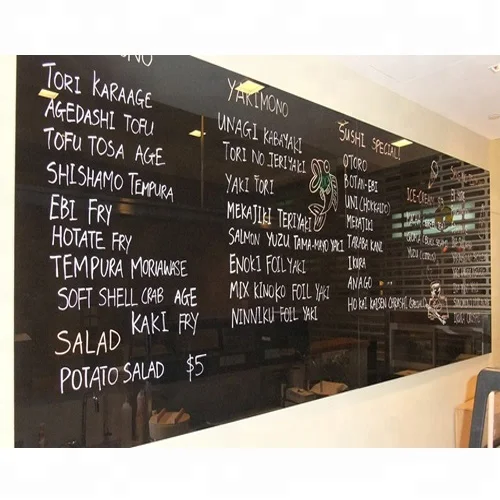 TORI KARAAGE
AGEDASHI TOFU
TOFU TOSA AGE
SHISHAMO TEMPURA
EBI FRY
HOTATE FRY
TEMPURA MORIAWASE
SOFT SHELL CRAB AGE
KAKI FRY
SALAD
POTATO SALAD $5
YAKIMONO
UNAGI KABAYAKI
TORI NO TERIYAKI
YAKI TORI
MEKAJIKI TERIYAKI
SALMON YUZU TAMA-MAYO YAKI
ENOKI FOIL YAKI
MIX KINOKO FOIL YAKI
NINNIKU FOIL YAKI
SUSHI SPECIAL
OTORO
BOTAN-EBI
UNI (HOKKAIDO)
MEKAJIKI
TARABA KANI
IKURA
ANAGO
HOKAI KAISEN CHIRASHI (SPECIAL)
ICE-CREAM